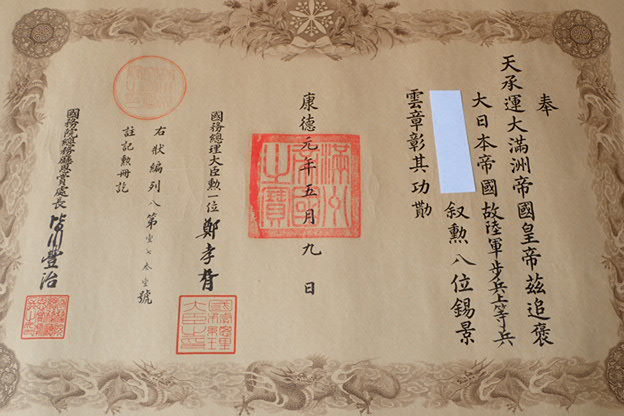 奉
天承運大滿洲帝國皇帝茲追褒
大日本帝國故陸軍步兵上等兵
叙勲八位錫景
雲章彰其功勛
康德元年五月九日
國務總理大臣勲一位 鄭孝胥
右狀編列八第 號
註記勲冊訖
國務院總務廳恩賞處長 皆川豐治